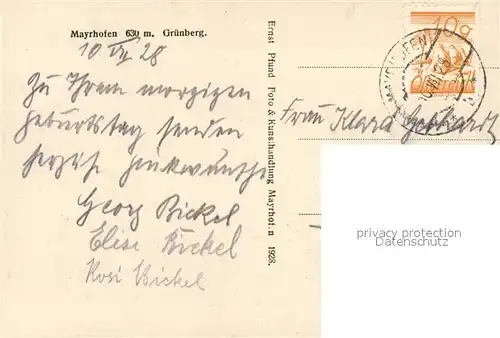 Mayrhofen 630 m, Grünberg.
10 VII 28
Zu Ihrem morgigen
Geburtstag senden
herzliche Glückwünsche
Georg Bickel
Elise Bickel
Rosi Bickel
Ernst Pfund Foto & Kunsthandlung Mayrhof.n 1928.
10g
MAYRHOFEN
Frau Klara Gebhardt
privacy protection
AnsichtskartenVersand.com